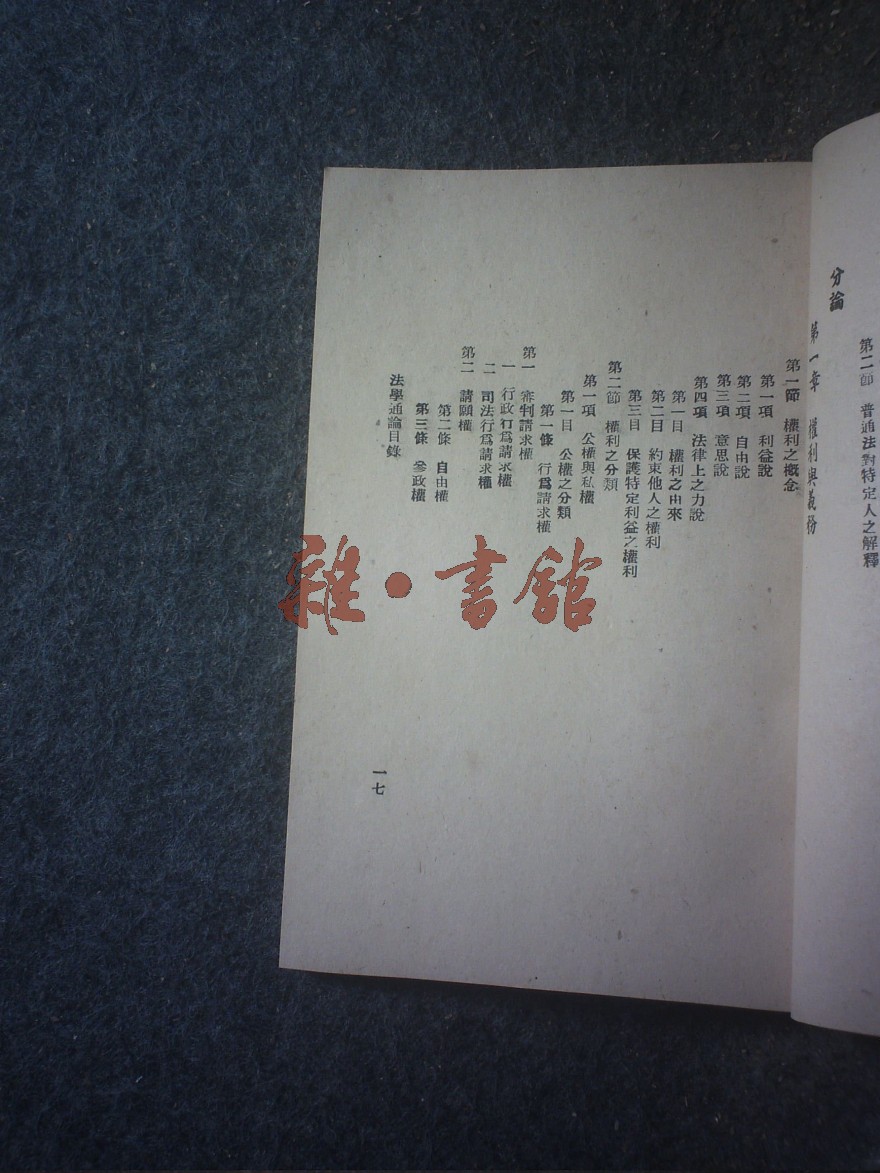 第二節　普通法對特定人之解釋
分論
第一章　權利與義務
第一節　權利之概念
第一項　利益說
第二項　自由說
第三項　意思說
第四項　法律上之力說
第一目　權利之由來
第二目　約束他人之權利
第三目　保護特定利益之權利
第二節　權利之分類
第一項　公權與私權
第一目　公權之分類
第一條　行爲請求權
第一　審判請求權
一　行政行爲請求權
二　司法行爲請求權
第二　請願權
第二條　自由權
第三條　參政權
法學通論目錄
一七
雜·書館